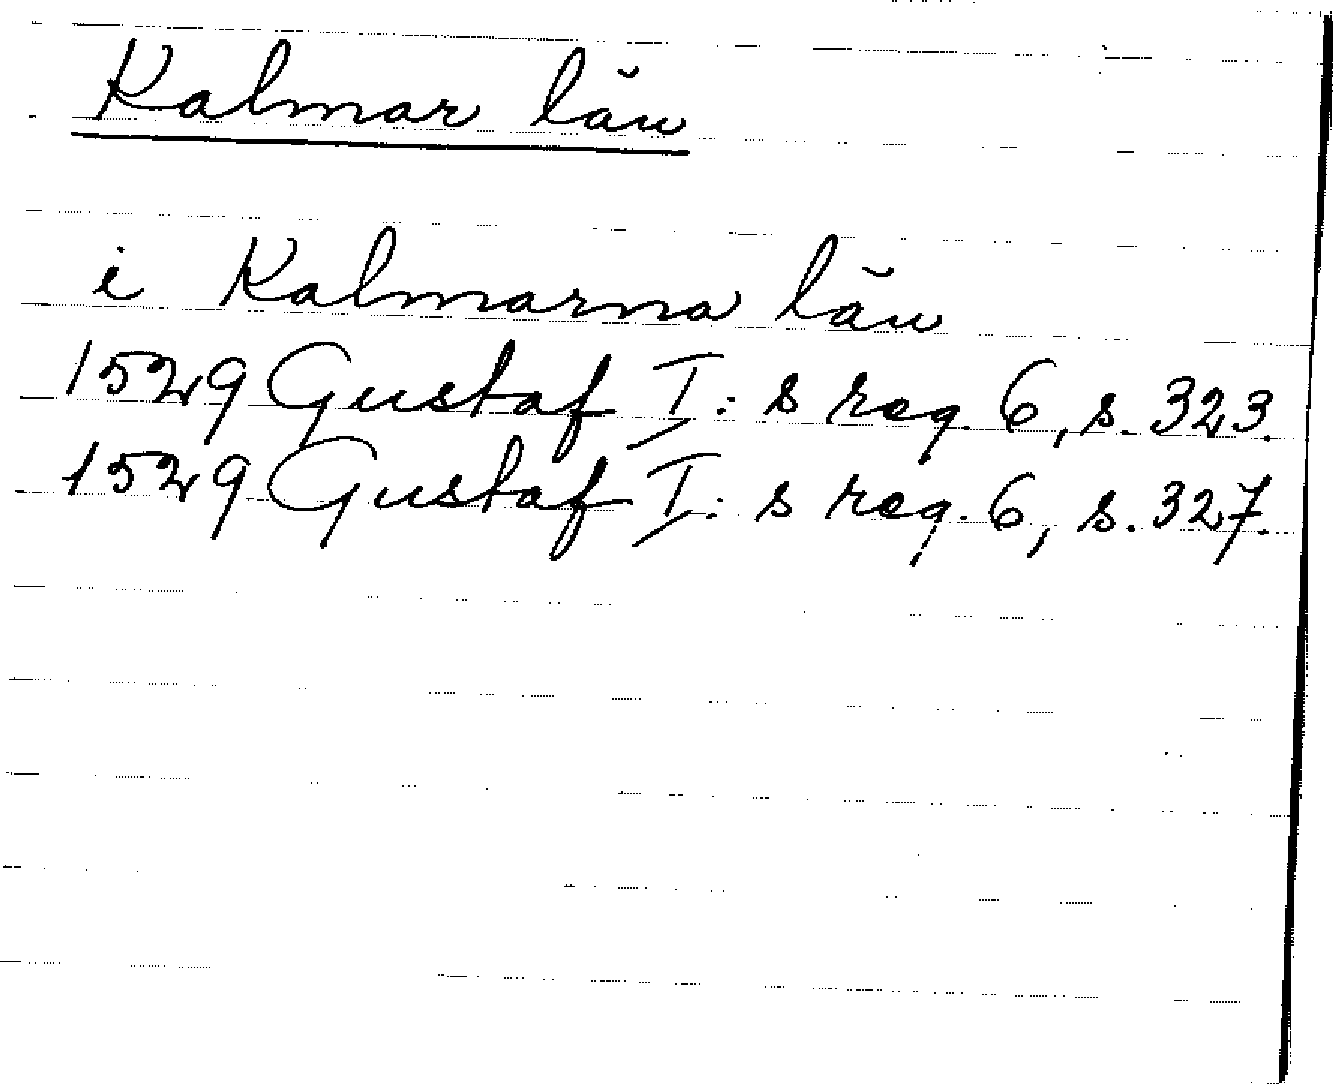 Kalmar län
i Kalmarna län
1529 Gustaf I:s reg. 6, s. 323.
1529 Gustaf I:s reg. 6, s. 327.